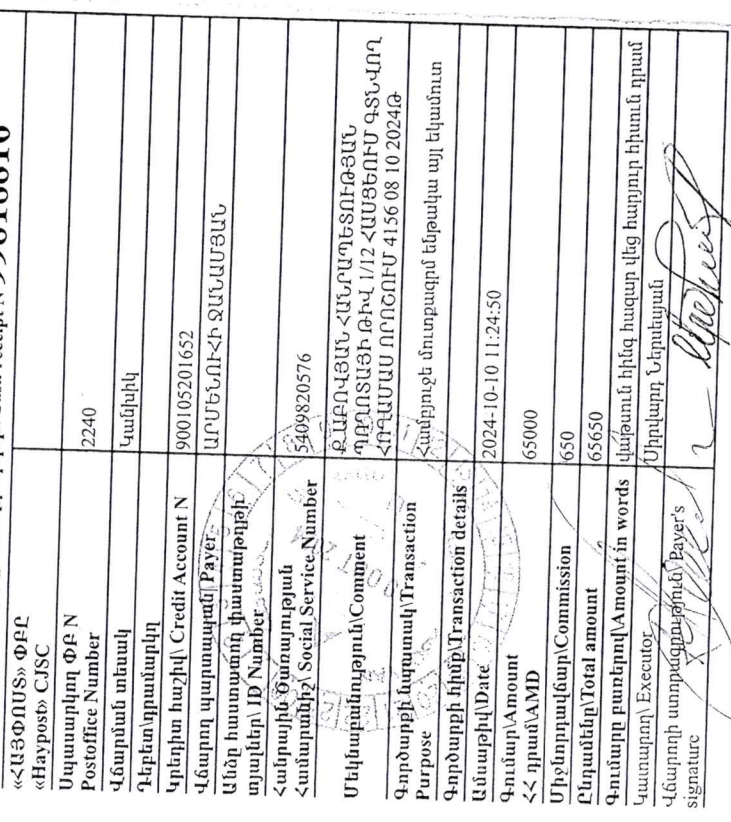 «ՀԱՅՓՈՍՏ» ՓԲԸ
«Haypost» CJSC
Սպասարկող ՓԲ N
Postoffice Number
2240
Վճարման տեսակ
Կանխիկ
Դեբետ\դրամարկղ
Կրեդիտ հաշիվ\ Credit Account N
900105201652
Վճարող պարտապան\ Payer
ԱՐՄԵՆՈՒՀԻ ՋԱՆԱՄՅԱՆ
Անձը հաստատող փաստաթղթի
տվյալներ\ ID Number
Հանրային Ծառայության
Համարանիշ\ Social Service Number
5409820576
Մեկնաբանություն\Comment
ՔԱԲՈՎՅԱՆ ՀԱՆՐԱՊԵՏՈՒԹՅԱՆ
ՊՈՂՈՏԱՅԻ ԹԻՎ 1/12 ՀԱՍՑԵՈՒՄ ԳՏՆՎՈՂ
ՀՈՂԱՄԱՍ ՈՐՈՇՈՒՄ 4156 08 10 2024Թ
Գործարքի նպատակ\Transaction
Purpose
Համբյուջե մուտքագրմ ենթակա այլ եկամուտ
Գործարքի հիմք\Transaction details
Ամսաթիվ\Date
2024-10-10 11:24:50
Գումար\Amount
ՀՀ դրամ\AMD
65000
Միջնորդավճար\Commission
650
Ընդամենը\Total amount
65650
Գումարը բառերով\Amount in words
վաթսուն հինգ հազար վեց հարյուր հիսուն դրամ
Կատարող\ Executor
Միրվարդ Ներսեսյան
Վճարողի ստորագրություն\ Payer's
signature